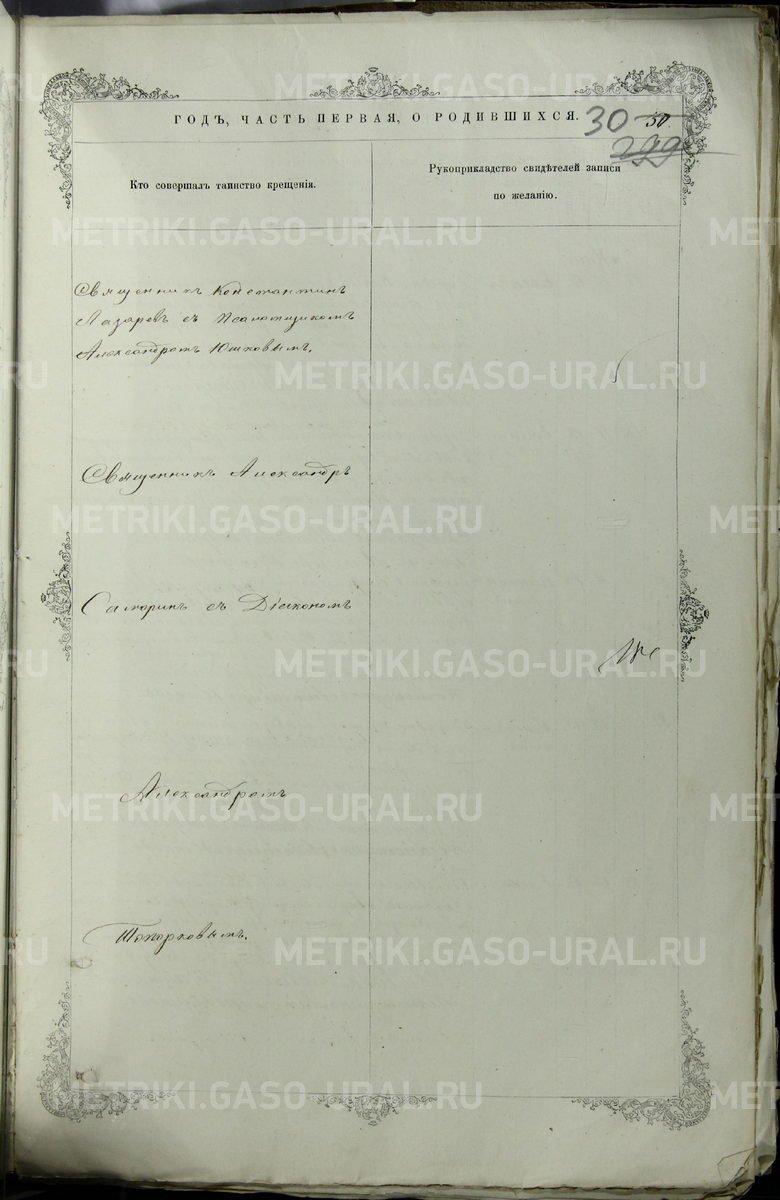 ГОДЪ, ЧАСТЬ ПЕРВАЯ, О РОДИВШИХСЯ.
30
30
299
Кто совершалъ таинство крещенія.
Рукоприкладство свидѣтелей записи
по желанію.
Священникъ Константинъ
Лазаревъ съ Псаломщикомъ
Александромъ Юшковымъ.
Священникъ Александръ
Саморинъ съ Діакономъ
Александромъ
Топорковымъ.
METRIKI.GASO-URAL.RU